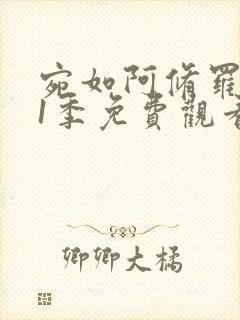 宛如阿脩羅
1季免費觀看
卿卿大橘